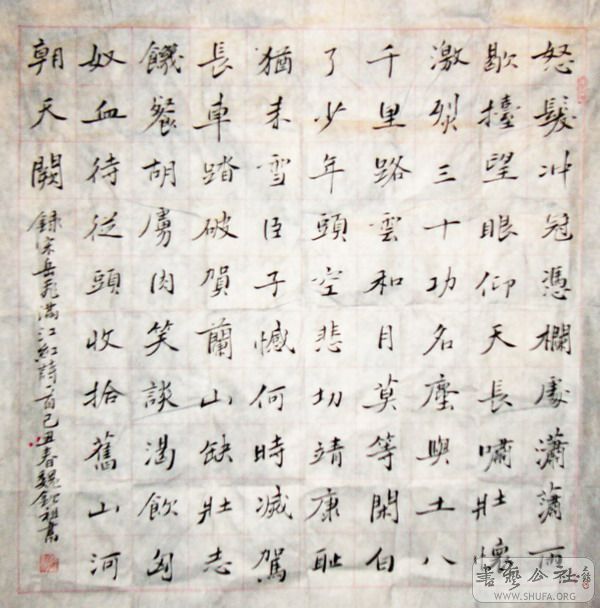 怒髮冲冠憑欄處瀟瀟雨
歇擡望眼仰天長嘯壯懷
激烈三十功名塵與土八
千里路雲和月莫等閑白
了少年頭空悲切靖康耻
猶未雪臣子憾何時滅駕
長車踏破賀蘭山缺壯志
饑餐胡虜肉笑談渴飲匈
奴血待從頭收拾舊山河
朝天闕
錄宋岳飛滿江紅詩一首己丑春魏祖書
書藝公社
WWW.SHUFA.ORG